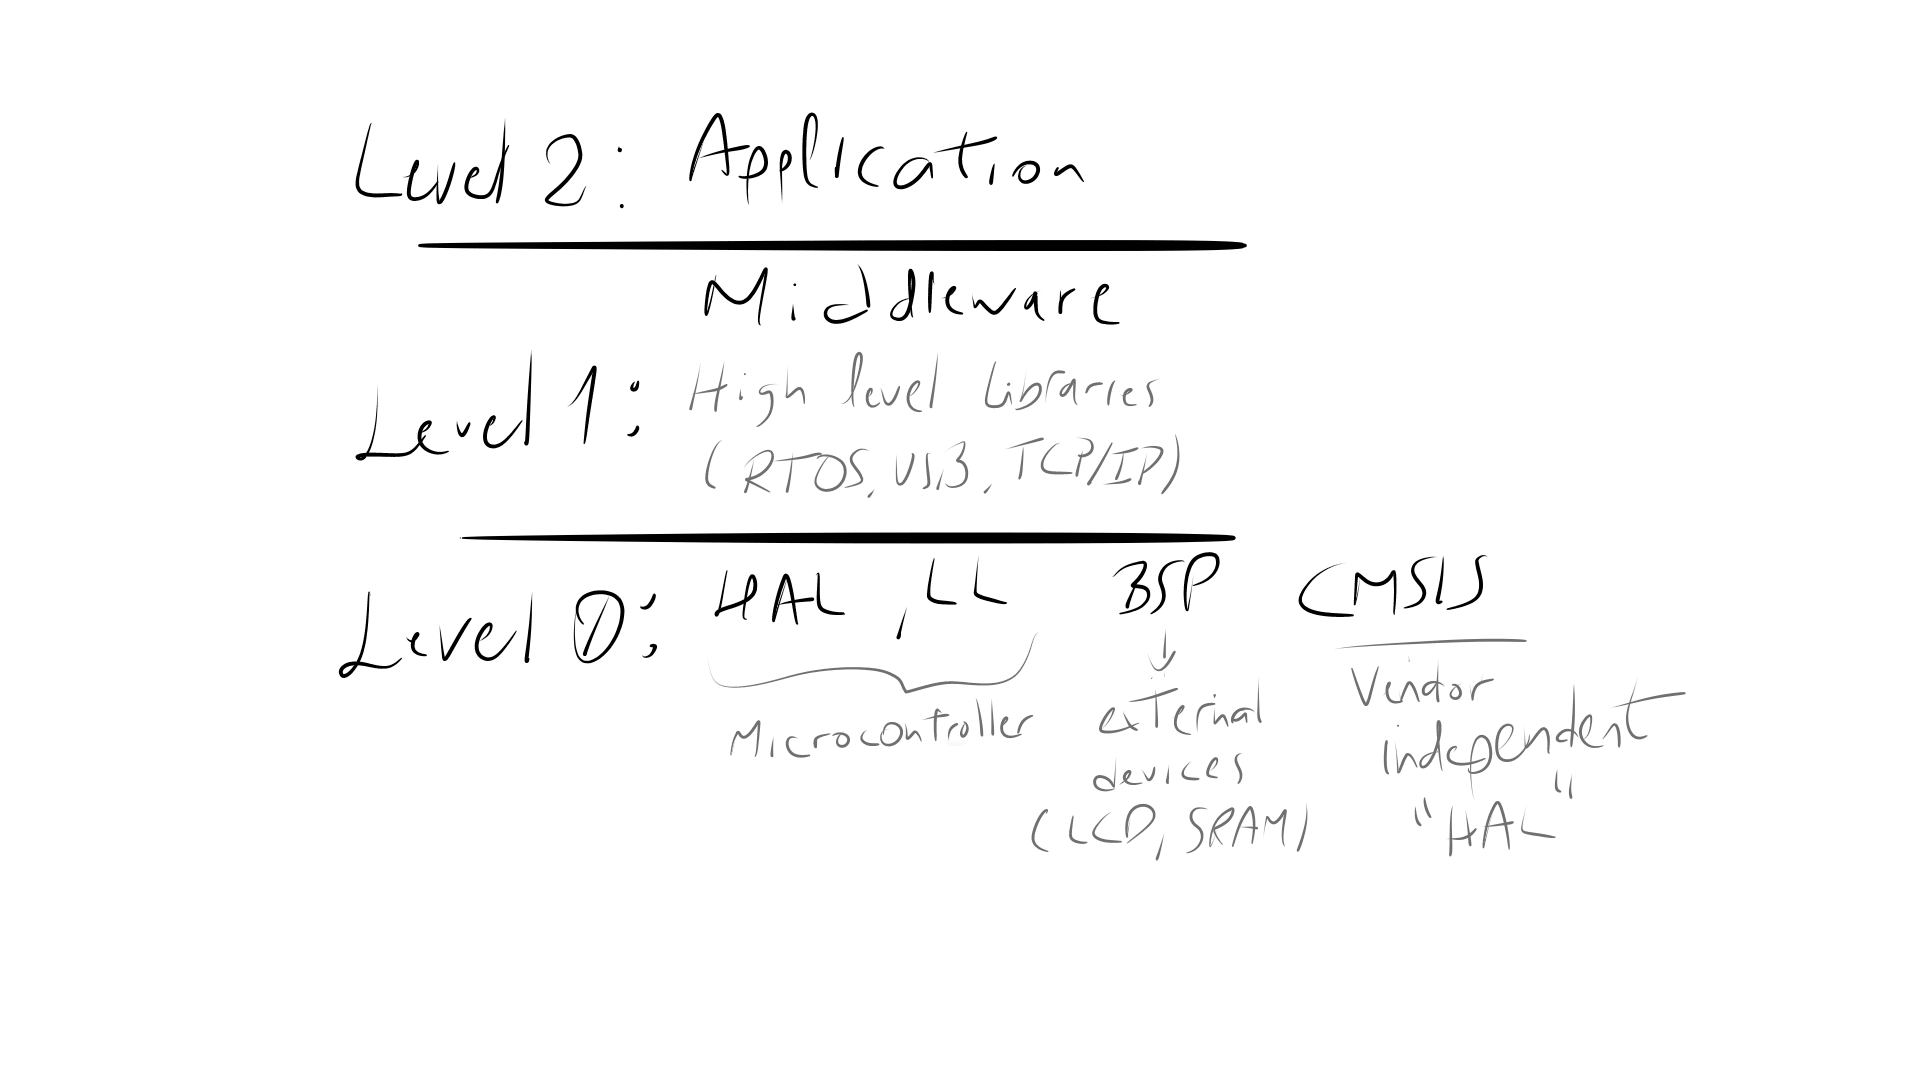 Level 2: Application
Middleware
Level 1: High level Libraries
(RTOS, USB, TCP/IP)
Level 0: HAL, LL BSP CMSIS
Microcontroller
external
devices
(LCD, SRAM)
Vendor
independent
"HAL"